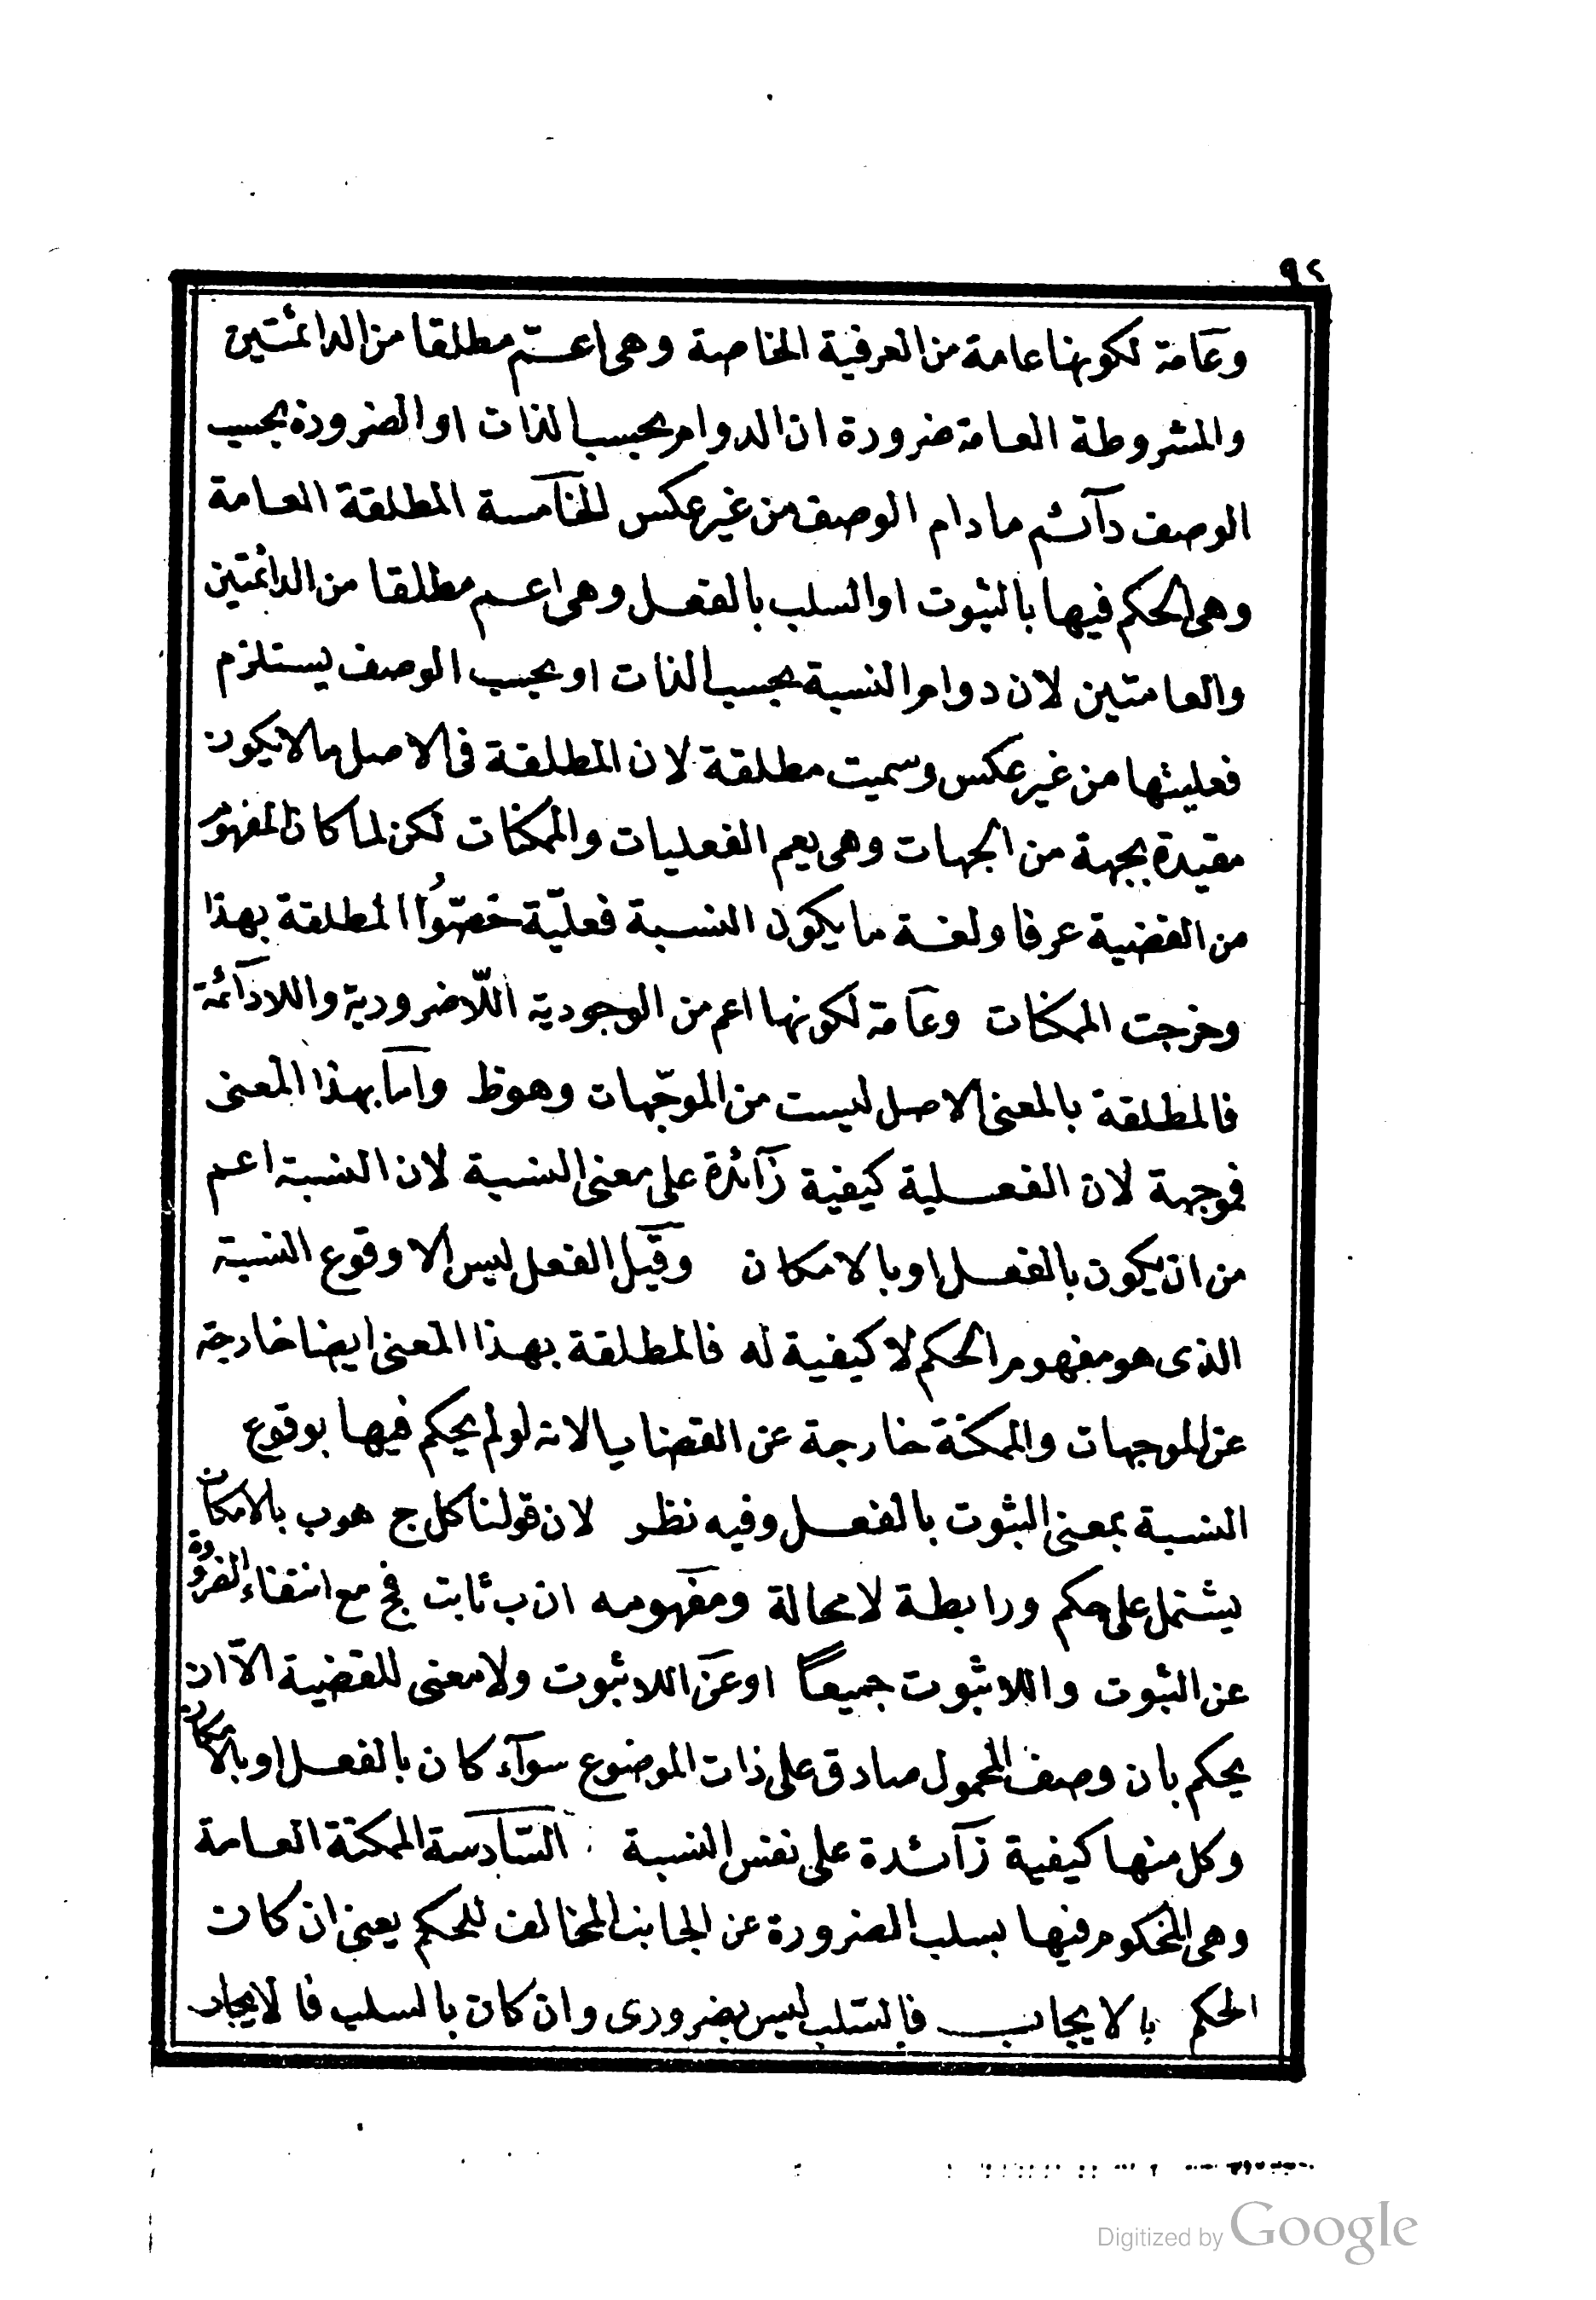 ٩٢
وعامة لكونها عامة من العرفية الخاصة وهى اعمّ مطلقا من الدائمتين
والمشروطة العامة ضرورة ان الدوام بحسب الذات او الضرورة بحسب
الوصف دآئم مادام الوصف من غير عكس الخآمسة المطلقة العامة
وهى الحكم فيها بالثبوت او السلب بالفعل وهى اعم مطلقا من الدائمتين
والعامتين لان دوام النسبة بحسب الذات او بحسب الوصف يستلزم
فعليتها من غير عكس وسميت مطلقة لان المطلقة فى الاصل مالا يكون
مقيدة بجهة من الجهات وهى يعم الفعليات والممكنات لكن لما كان المفهوم
من القضية عرفا ولغة ما يكون النسبة فعليّة خصّوُا المطلقة بهذا
وخرجت الممكنات وعامة لكونها اعم من الوجودية اللّاضرورية واللادآئمة
فالمطلقة بالمعنى الاصل ليست من الموجّهات وهوظ وآما بهذا المعنى
فموجهة لان الفعلية كيفية زآئدة على معنى النسبة لان النسبة اعم
من ان يكون بالفعل او بالامكان وقيل الفعل ليس الا وقوع النسبة
الذى هو مفهوم الحكم لا كيفية له فالمطلقة بهذا المعنى ايضا خارجة
عن الموجهات والممكنة خارجة عن القضايا لانه لولم يحكم فيها بوقوع
النسبة بمعنى الثبوت بالفعل وفيه نظر لان قولنا كل ج هوب بالامكان
يشتمل على حكم ورابطة لا محالة ومفهومه ان ب ثابت لج مع انتفاء الضرورة
عن الثبوت واللاثبوت جميعاً او عن اللاثبوت ولا معنى للقضية الآ ان
يحكم بان وصف المحمول صادق على ذات الموضوع سوآء كان بالفعل او بالامكان
وكل منها كيفية زآئدة على نفس النسبة السّادسة الممكنة العامة
وهى المحكوم فيها بسلب الضرورة عن الجانب المخالف للحكم يعنى ان كان
الحكم بالايجاب فالسّلب ليس بضرورى وان كان بالسلب فالايجاب
Digitized by Google